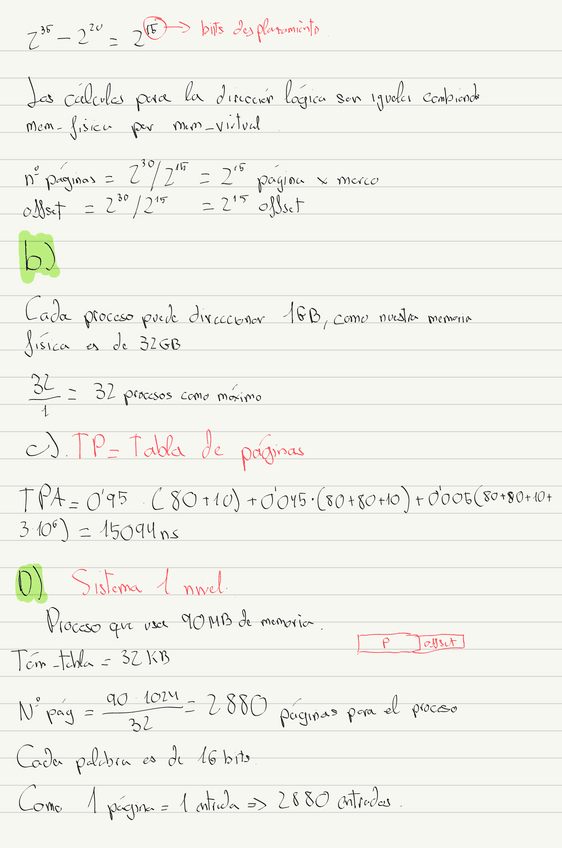 2^35 - 2^20 = 2^15 → bits desplazamiento.
Los cálculos para la dirección lógica son iguales cambiando
mem_física por mem_virtual
nº páginas = 2^30/2^15 = 2^15 página x marco
offset = 2^30/2^15 = 2^15 offset
b)
Cada proceso puede direccionar 1GB, como nuestra memoria
física es de 32GB
32/1 = 32 procesos como máximo
c). TP = Tabla de páginas
TPA = 0'95 · (80+10) + 0'045·(80+80+10) + 0'005(80+80+10+
3·10^6) = 15094ns
D) Sistema 1 nivel.
Proceso que usa 90MB de memoria.
P offset
Tám_tabla = 32 KB
Nº pág = 90·1024/32 = 2880 páginas para el proceso
Cada palabra es de 16 bits.
Como 1 página = 1 entrada => 2880 entradas.